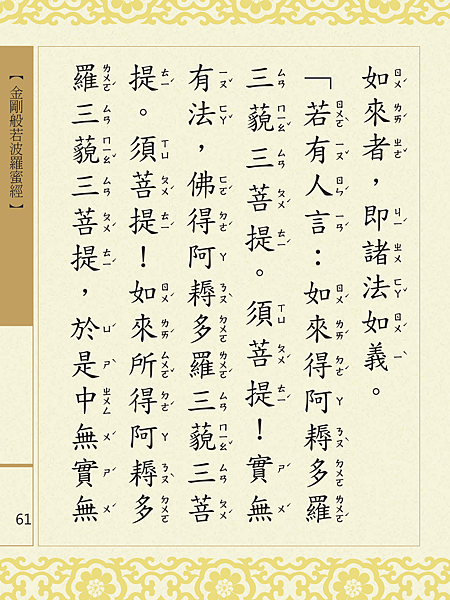 如來者，即諸法如義。
「若有人言：如來得阿耨多羅
三藐三菩提。須菩提！實無
有法，佛得阿耨多羅三藐三菩
提。須菩提！如來所得阿耨多
羅三藐三菩提，於是中無實無
【金剛般若波羅蜜經】
61